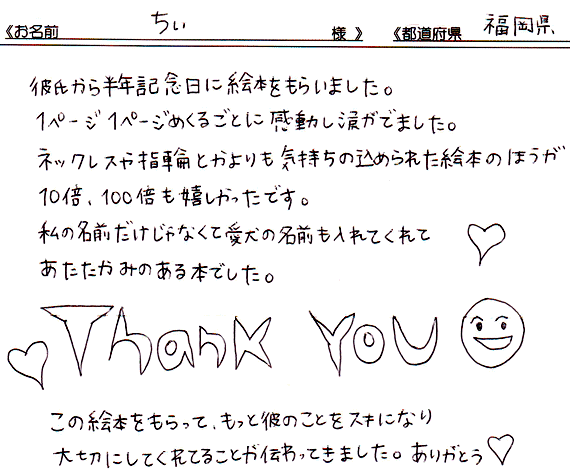 《お名前 ちぃ 様 》 《都道府県 福岡県
彼氏から半年記念日に絵本をもらいました。
1ページ1ページめくるごとに感動し涙がでました。
ネックレスや指輪とかよりも気持ちの込められた絵本のほうが
10倍、100倍も嬉しかったです。
私の名前だけじゃなくて愛犬の名前も入れてくれて
あたたかみのある本でした。
Thank You
この絵本をもらって、もっと彼のことをスキになり
大切にしてくれてることが伝わってきました。ありがとう